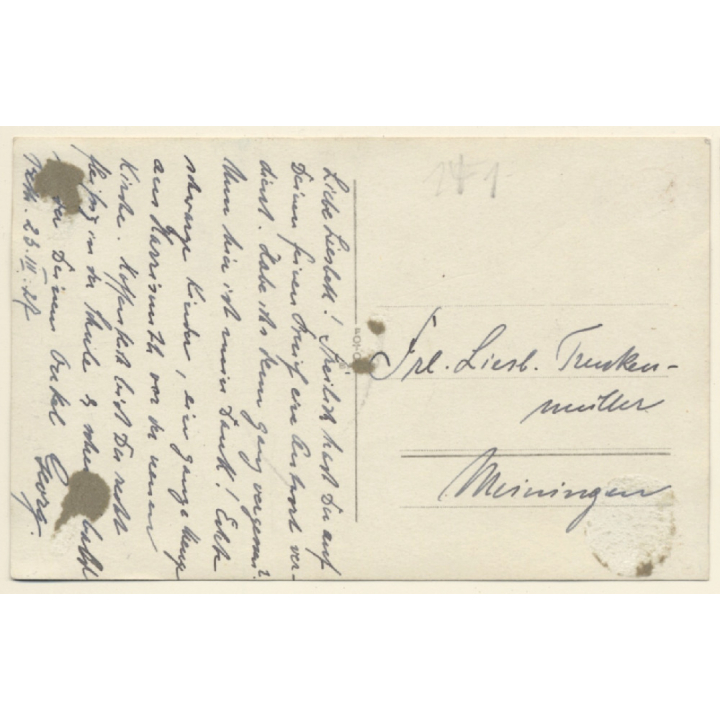 Liebe Liesbeth! Freilich hast Du auf
Deinen feinen Brief eine Antwort ver-
dient. Habe ich's denn ganz vergessen?
Nun hier ist mein Dank! Echte
schwarze Kinder, eine ganze Menge
aus Harrismith vor der neuen
Kirche. Hoffentlich bist Du recht
fleißig in der Schule &
Deinem Onkel Georg.
23.III.27
171
Frl. Liesb. Trenken-
müller
Meiningen